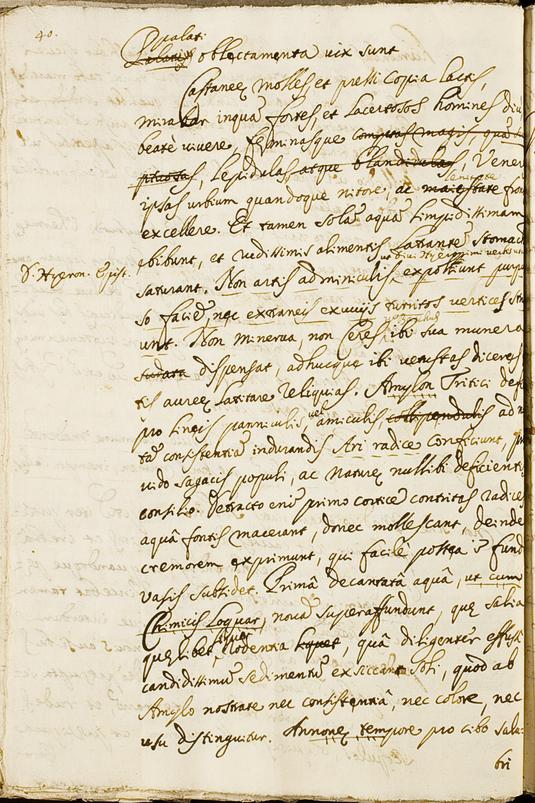 40.
Palati
oblectamenta vix sunt
Castaneę molles, et pressi copia lactis,
mirabar inquã fortes, et lacertosos homines diu
beatè vivere, feminasque
lepidulas atque blandidulas, Vener
ipsas urbium quandoque nitore, ac venustate maiestate fron
excellere. Et tamen solã aquã limpidissimam
ebibunt, et rudissimis alimentis latrantẽ stomac
D. Hyeron. Epist.
saturant. Non artis adminiculis expoliunt purpu
so faciẽ nec extraneis exuvijs turritos vertices stru
unt. Non Minerva, non Ceres ibi sua munera
dispensat, adhucque ibi venustas diceres
tis aureę latitare reliquias. Amylon Tritici defe
pro lineis panniculis, vel amiculis ad n
tã consistentiã indurandis Ari radice conficiunt, pro
vido sagacis populi, ac Naturę nullibi deficientis
consilio. Detracto enĩ primo cortice contritas radices
aquâ fontis macerant, donec mollescant, deinde
cremorem exprimunt, qui facilè postea ĩ fund
vasis subsidet. Primâ decantatâ aquâ, ut cum
Chimicis loquar, novã superaffundunt, quę salia
quęlibet rodentia liquet, quâ diligenter effusâ
candidissimũ sedimentũ exsiccant soli, quod ab
Amylo nostrate nec consistentiâ, nec colore, nec
usu distinguitur. Annonę tempore pro cibo salu-
bri